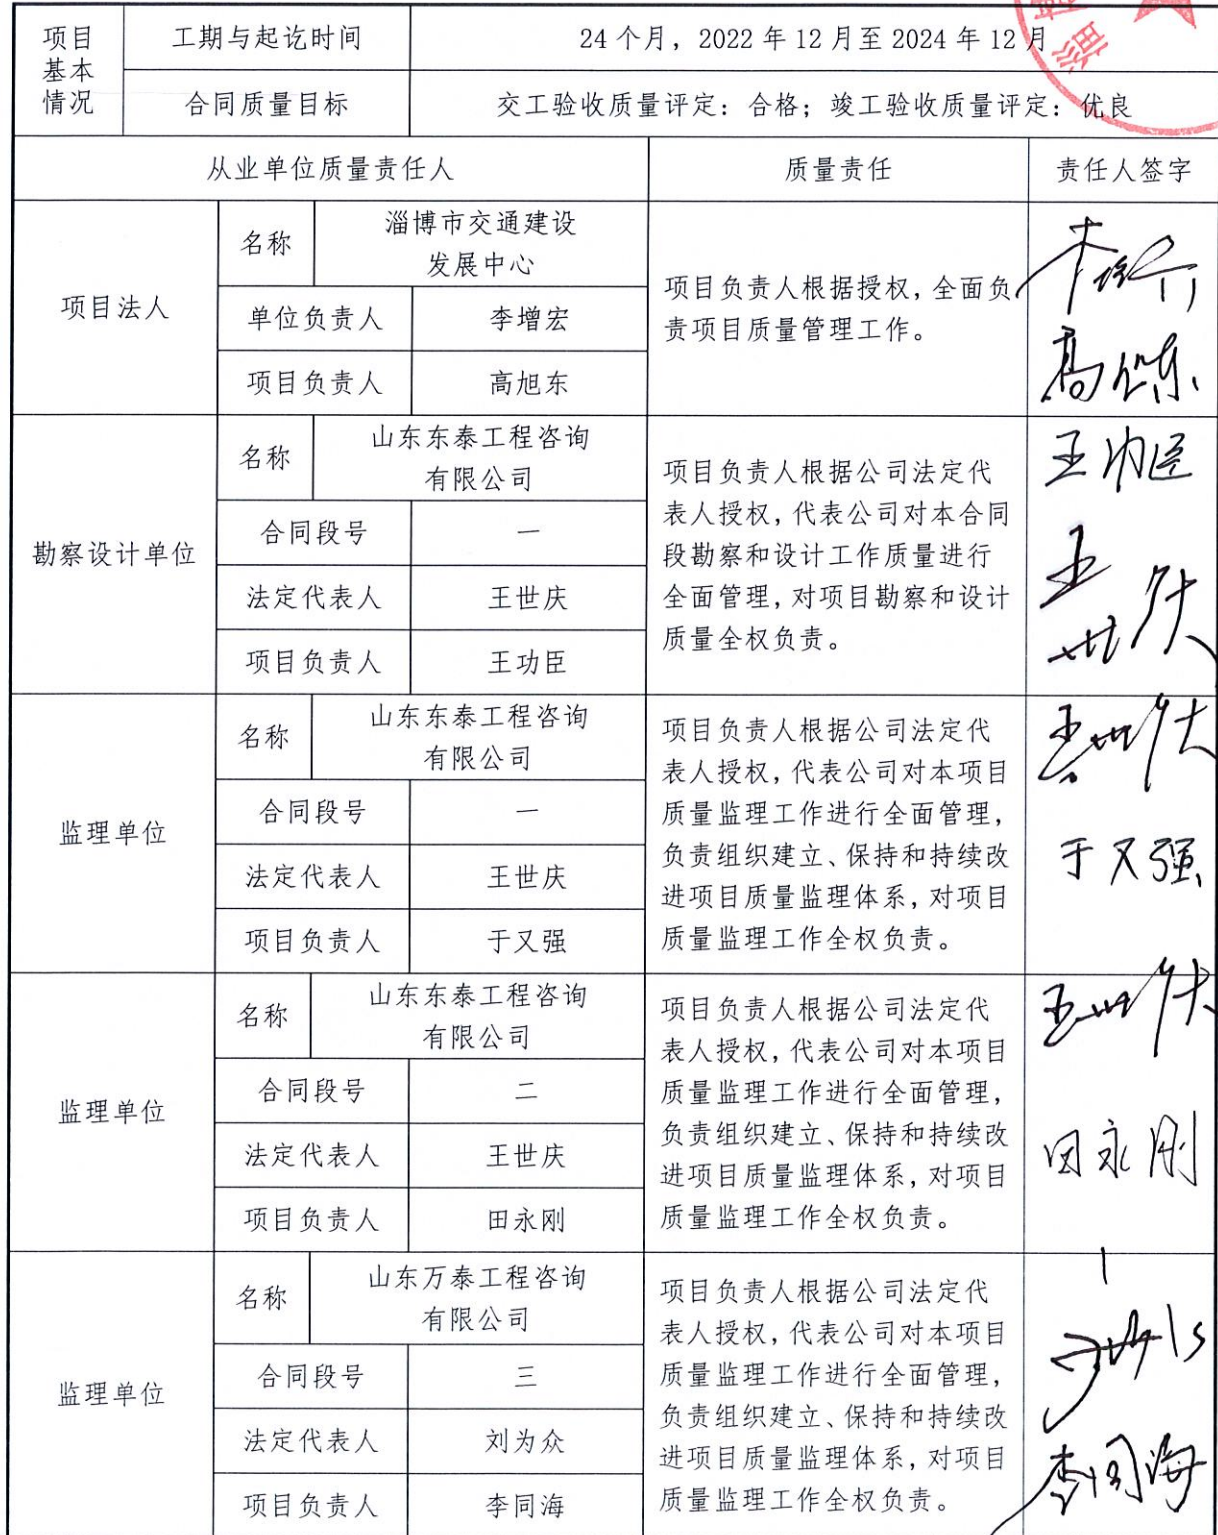 项目
基本
情况
工期与起讫时间
24个月，2022年12月至2024年12月
合同质量目标
交工验收质量评定：合格；竣工验收质量评定：优良
从业单位质量责任人
质量责任
责任人签字
项目法人
名称
淄博市交通建设
发展中心
单位负责人
李增宏
项目负责人
高旭东
项目负责人根据授权，全面负
责项目质量管理工作。
高旭东
勘察设计单位
名称
山东东泰工程咨询
有限公司
合同段号
一
法定代表人
王世庆
项目负责人
王功臣
项目负责人根据公司法定代
表人授权，代表公司对本合同
段勘察和设计工作质量进行
全面管理，对项目勘察和设计
质量全权负责。
王功臣
王世庆
监理单位
名称
山东东泰工程咨询
有限公司
合同段号
一
法定代表人
王世庆
项目负责人
于又强
项目负责人根据公司法定代
表人授权，代表公司对本项目
质量监理工作进行全面管理，
负责组织建立、保持和持续改
进项目质量监理体系，对项目
质量监理工作全权负责。
王世庆
于又强
监理单位
名称
山东东泰工程咨询
有限公司
合同段号
二
法定代表人
王世庆
项目负责人
田永刚
项目负责人根据公司法定代
表人授权，代表公司对本项目
质量监理工作进行全面管理，
负责组织建立、保持和持续改
进项目质量监理体系，对项目
质量监理工作全权负责。
王世庆
田永刚
监理单位
名称
山东万泰工程咨询
有限公司
合同段号
三
法定代表人
刘为众
项目负责人
李同海
项目负责人根据公司法定代
表人授权，代表公司对本项目
质量监理工作进行全面管理，
负责组织建立、保持和持续改
进项目质量监理体系，对项目
质量监理工作全权负责。
李同海